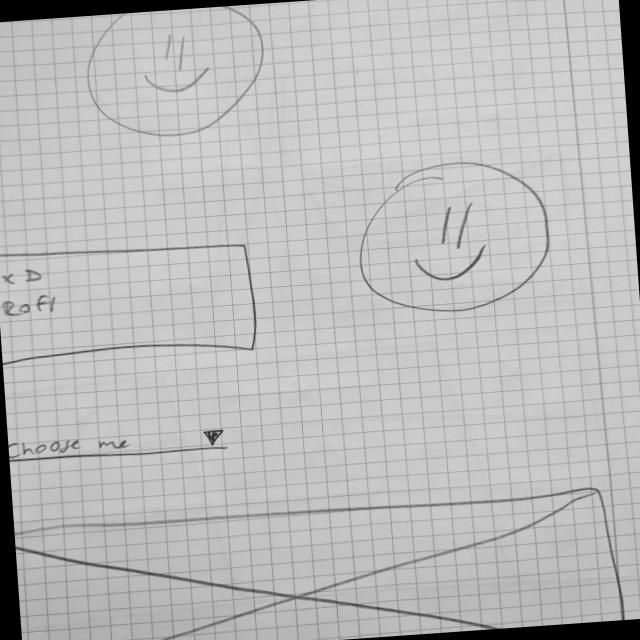 XD
Rofl
Choose me